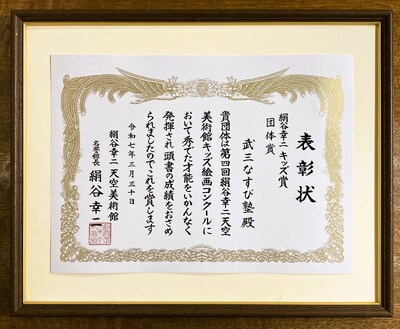 表彰状
絹谷幸二 キッズ賞
団体賞
武三なすび塾 殿
貴団体は第四回絹谷幸二天空
美術館キッズ絵画コンクールに
おいて秀でた才能をいかんなく
発揮され頭書の成績をおさめ
られましたのでこれを賞します
令和七年三月三十日
絹谷幸二 天空美術館
名誉館長 絹谷幸二